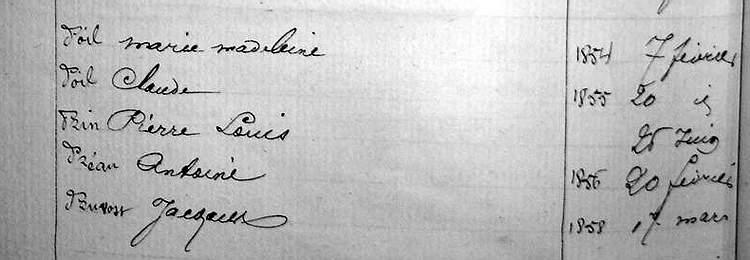 Poil marie madeleine 1854 7 février
Poil Claude 1855 20 id
Pin Pierre Louis 25 Juin
Préau Antoine 1856 20 février
Jacques 1858 17 mars